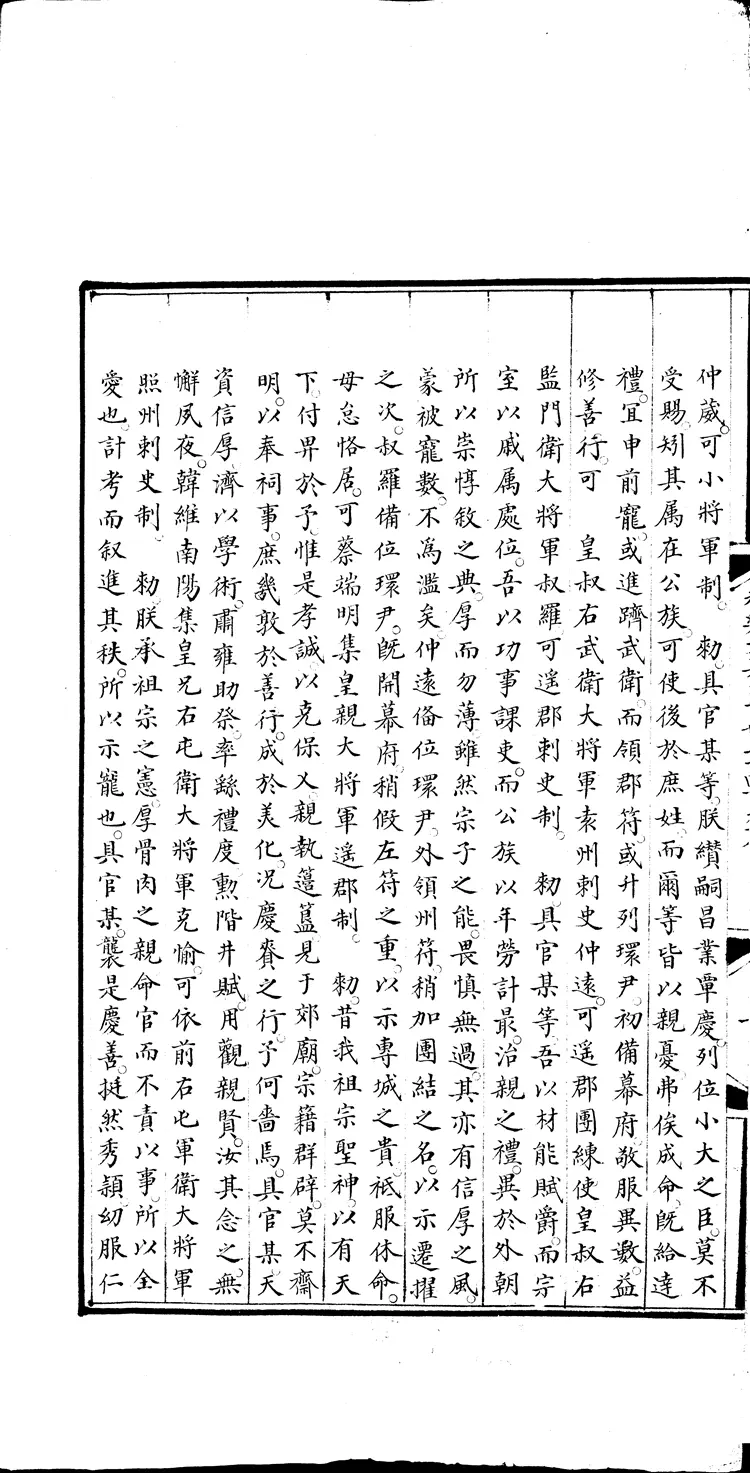 仲葳。可小將軍制。　勅。具官某等。朕纉嗣昌業。覃慶列位。小大之臣。莫不
受賜。矧其属在公族。可使後於庶姓。而爾等皆以親憂弗俟成命。旣給逹
禮。宜申前寵。或進躋武衛。而領郡符。或升列環尹。初備幕府。敬服異數。益
修善行。可　皇叔右武衛大將軍袁州刺史仲遠。可遥郡團練使皇叔右
監門衛大將軍叔羅可遥郡刺史制。　勅。具官某等。吾以材能賦爵。而宗
室以戚属處位。吾以功事課吏。而公族以年勞計最。治親之禮。異於外朝
所以崇惇敘之典。厚而勿薄。雖然宗子之能。畏慎無過。其亦有信厚之風。
蒙被寵數。不爲濫矣。仲遠俻位環尹。外領州符。稍加團結之名。以示遷擢
之次。叔羅備位環尹。旣開幕府。稍假左符之重。以示専城之貴。祗服休命。
毋怠恪居。可蔡端明集皇親大將軍遥郡制　勅。昔我祖宗聖神。以有天
下。付畀於予。惟是孝誠。以克保乂。親執籩簋。見于郊廟。宗籍群辟。莫不齋
明。以奉祠事。庶幾敦於善行。成於美化。况慶賚之行。予何嗇焉。具官某天
資信厚。濟以學術。肅雍助祭。率繇禮度。勲階井賦。用觀親賢。汝其念之。無
懈夙夜。韓維南陽集皇兄右屯衛大將軍克愉。可依前右屯軍衛大將軍
照州刺史制　勅朕承祖宗之憲。厚骨肉之親。命官而不責以事。所以全
愛也。計考而叙進其秩。所以示寵也。具官某。襲是慶善。挺然秀頴幼服仁